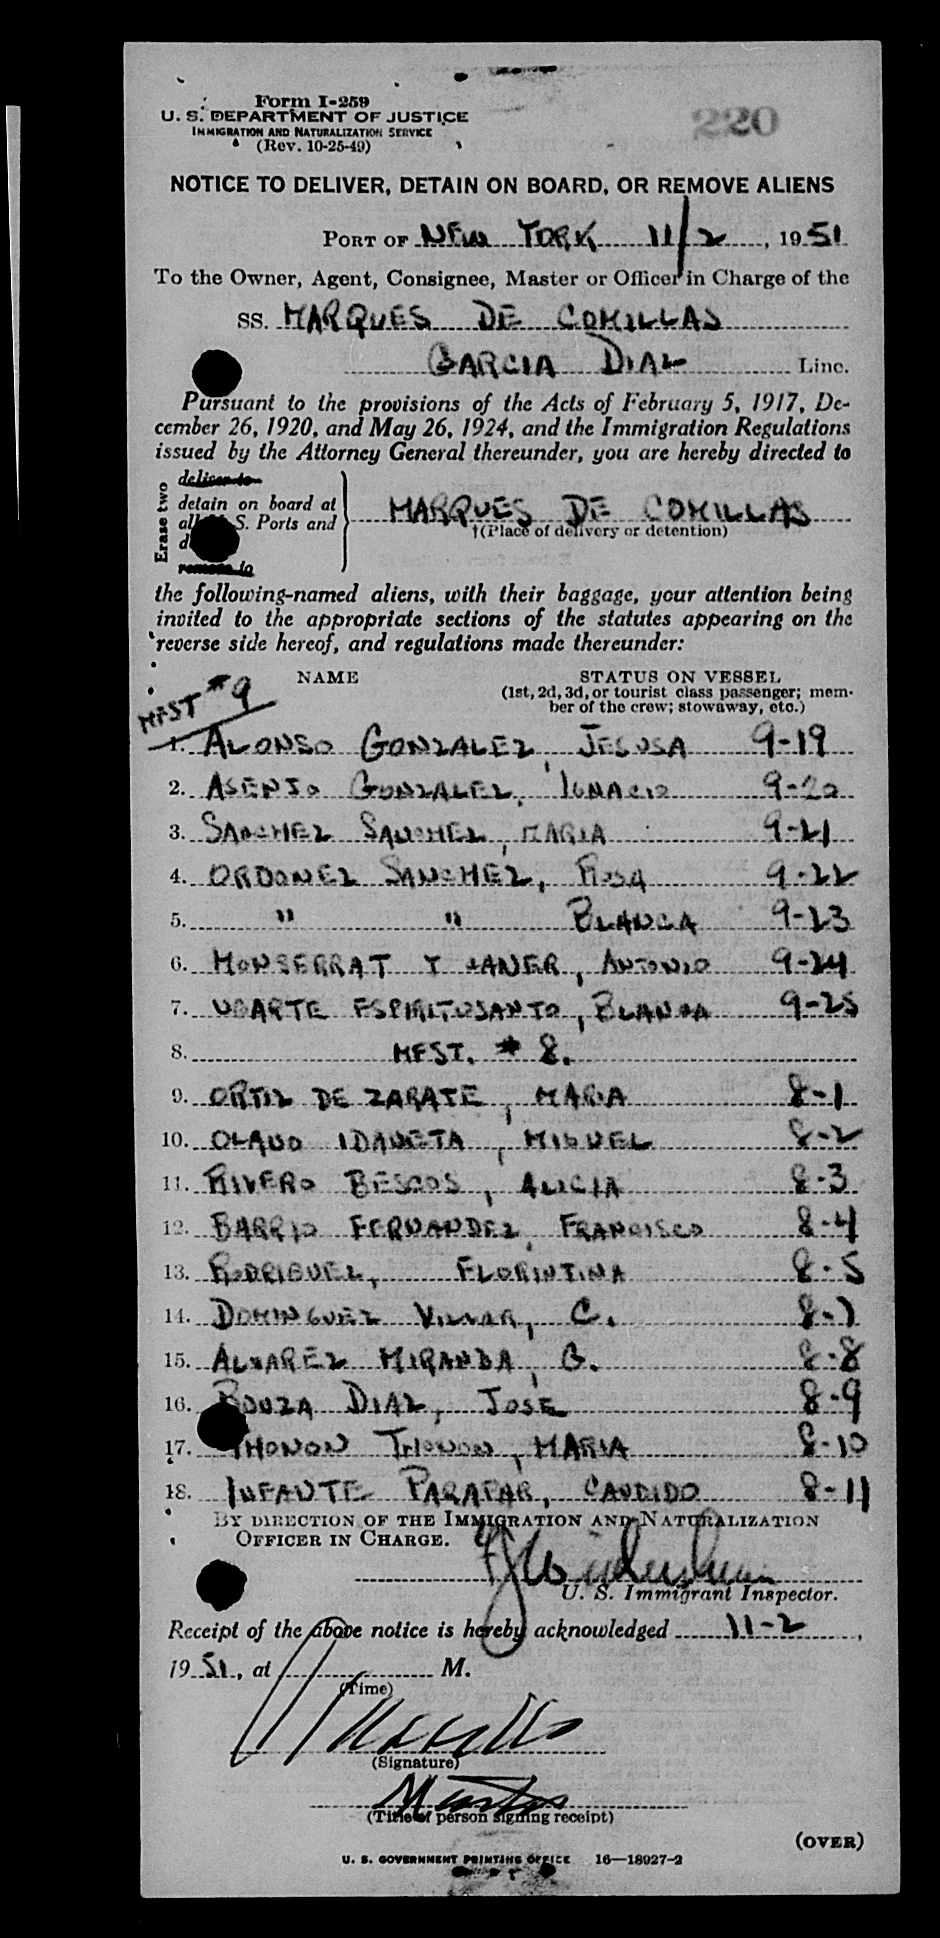 Form I-259
U. S. DEPARTMENT OF JUSTICE
IMMIGRATION AND NATURALIZATION SERVICE
(Rev. 10-25-49)
220
NOTICE TO DELIVER, DETAIN ON BOARD, OR REMOVE ALIENS
PORT OF NEW YORK 11/2, 1951
To the Owner, Agent, Consignee, Master or Officer in Charge of the
SS. MARQUES DE COMILLAS
GARCIA DIAZ Line.
Pursuant to the provisions of the Acts of February 5, 1917, De-
cember 26, 1920, and May 26, 1924, and the Immigration Regulations
issued by the Attorney General thereunder, you are hereby directed to
Erase two
deliver to
detain on board at
all S. Ports and
remove to
MARQUES DE COMILLAS
†(Place of delivery or detention)
the following-named aliens, with their baggage, your attention being
invited to the appropriate sections of the statutes appearing on the
reverse side hereof, and regulations made thereunder:
NAME STATUS ON VESSEL
(1st, 2d, 3d, or tourist class passenger; mem-
ber of the crew; stowaway, etc.)
MFST #9
1. ALONSO GONZALEZ, JESUSA 9-19
2. ASENJO GONZALEZ, IGNACIO 9-20
3. SANCHEZ SANCHEZ, MARIA 9-21
4. ORDONEZ SANCHEZ, ROSA 9-22
5. " " BLANCA 9-23
6. MONSERRAT Y JANER, ANTONIO 9-24
7. UGARTE ESPIRITUSANTO, BLANCA 9-25
8. MFST. #8.
9. ORTIZ DE ZARATE, MARIA 8-1
10. OLANO IDANETA, MIGUEL 8-2
11. RIVERO BESCOS, ALICIA 8-3
12. BARRIO FERNANDEZ, FRANCISCO 8-4
13. RODRIGUEZ, FLORINTINA 8-5
14. DOMINGUEZ VILLAR, C. 8-7
15. ALVAREZ MIRANDA, G. 8-8
16. BOUZA DIAZ, JOSE 8-9
17. THONON THONON, MARIA 8-10
18. INFANTE PARAFAR, CANDIDO 8-11
BY DIRECTION OF THE IMMIGRATION AND NATURALIZATION
OFFICER IN CHARGE.
U. S. Immigrant Inspector.
Receipt of the above notice is hereby acknowledged 11-2,
1951, at M.
(Time)
(Signature)
Master
(Title of person signing receipt)
(OVER)
U. S. GOVERNMENT PRINTING OFFICE 16—18927-2